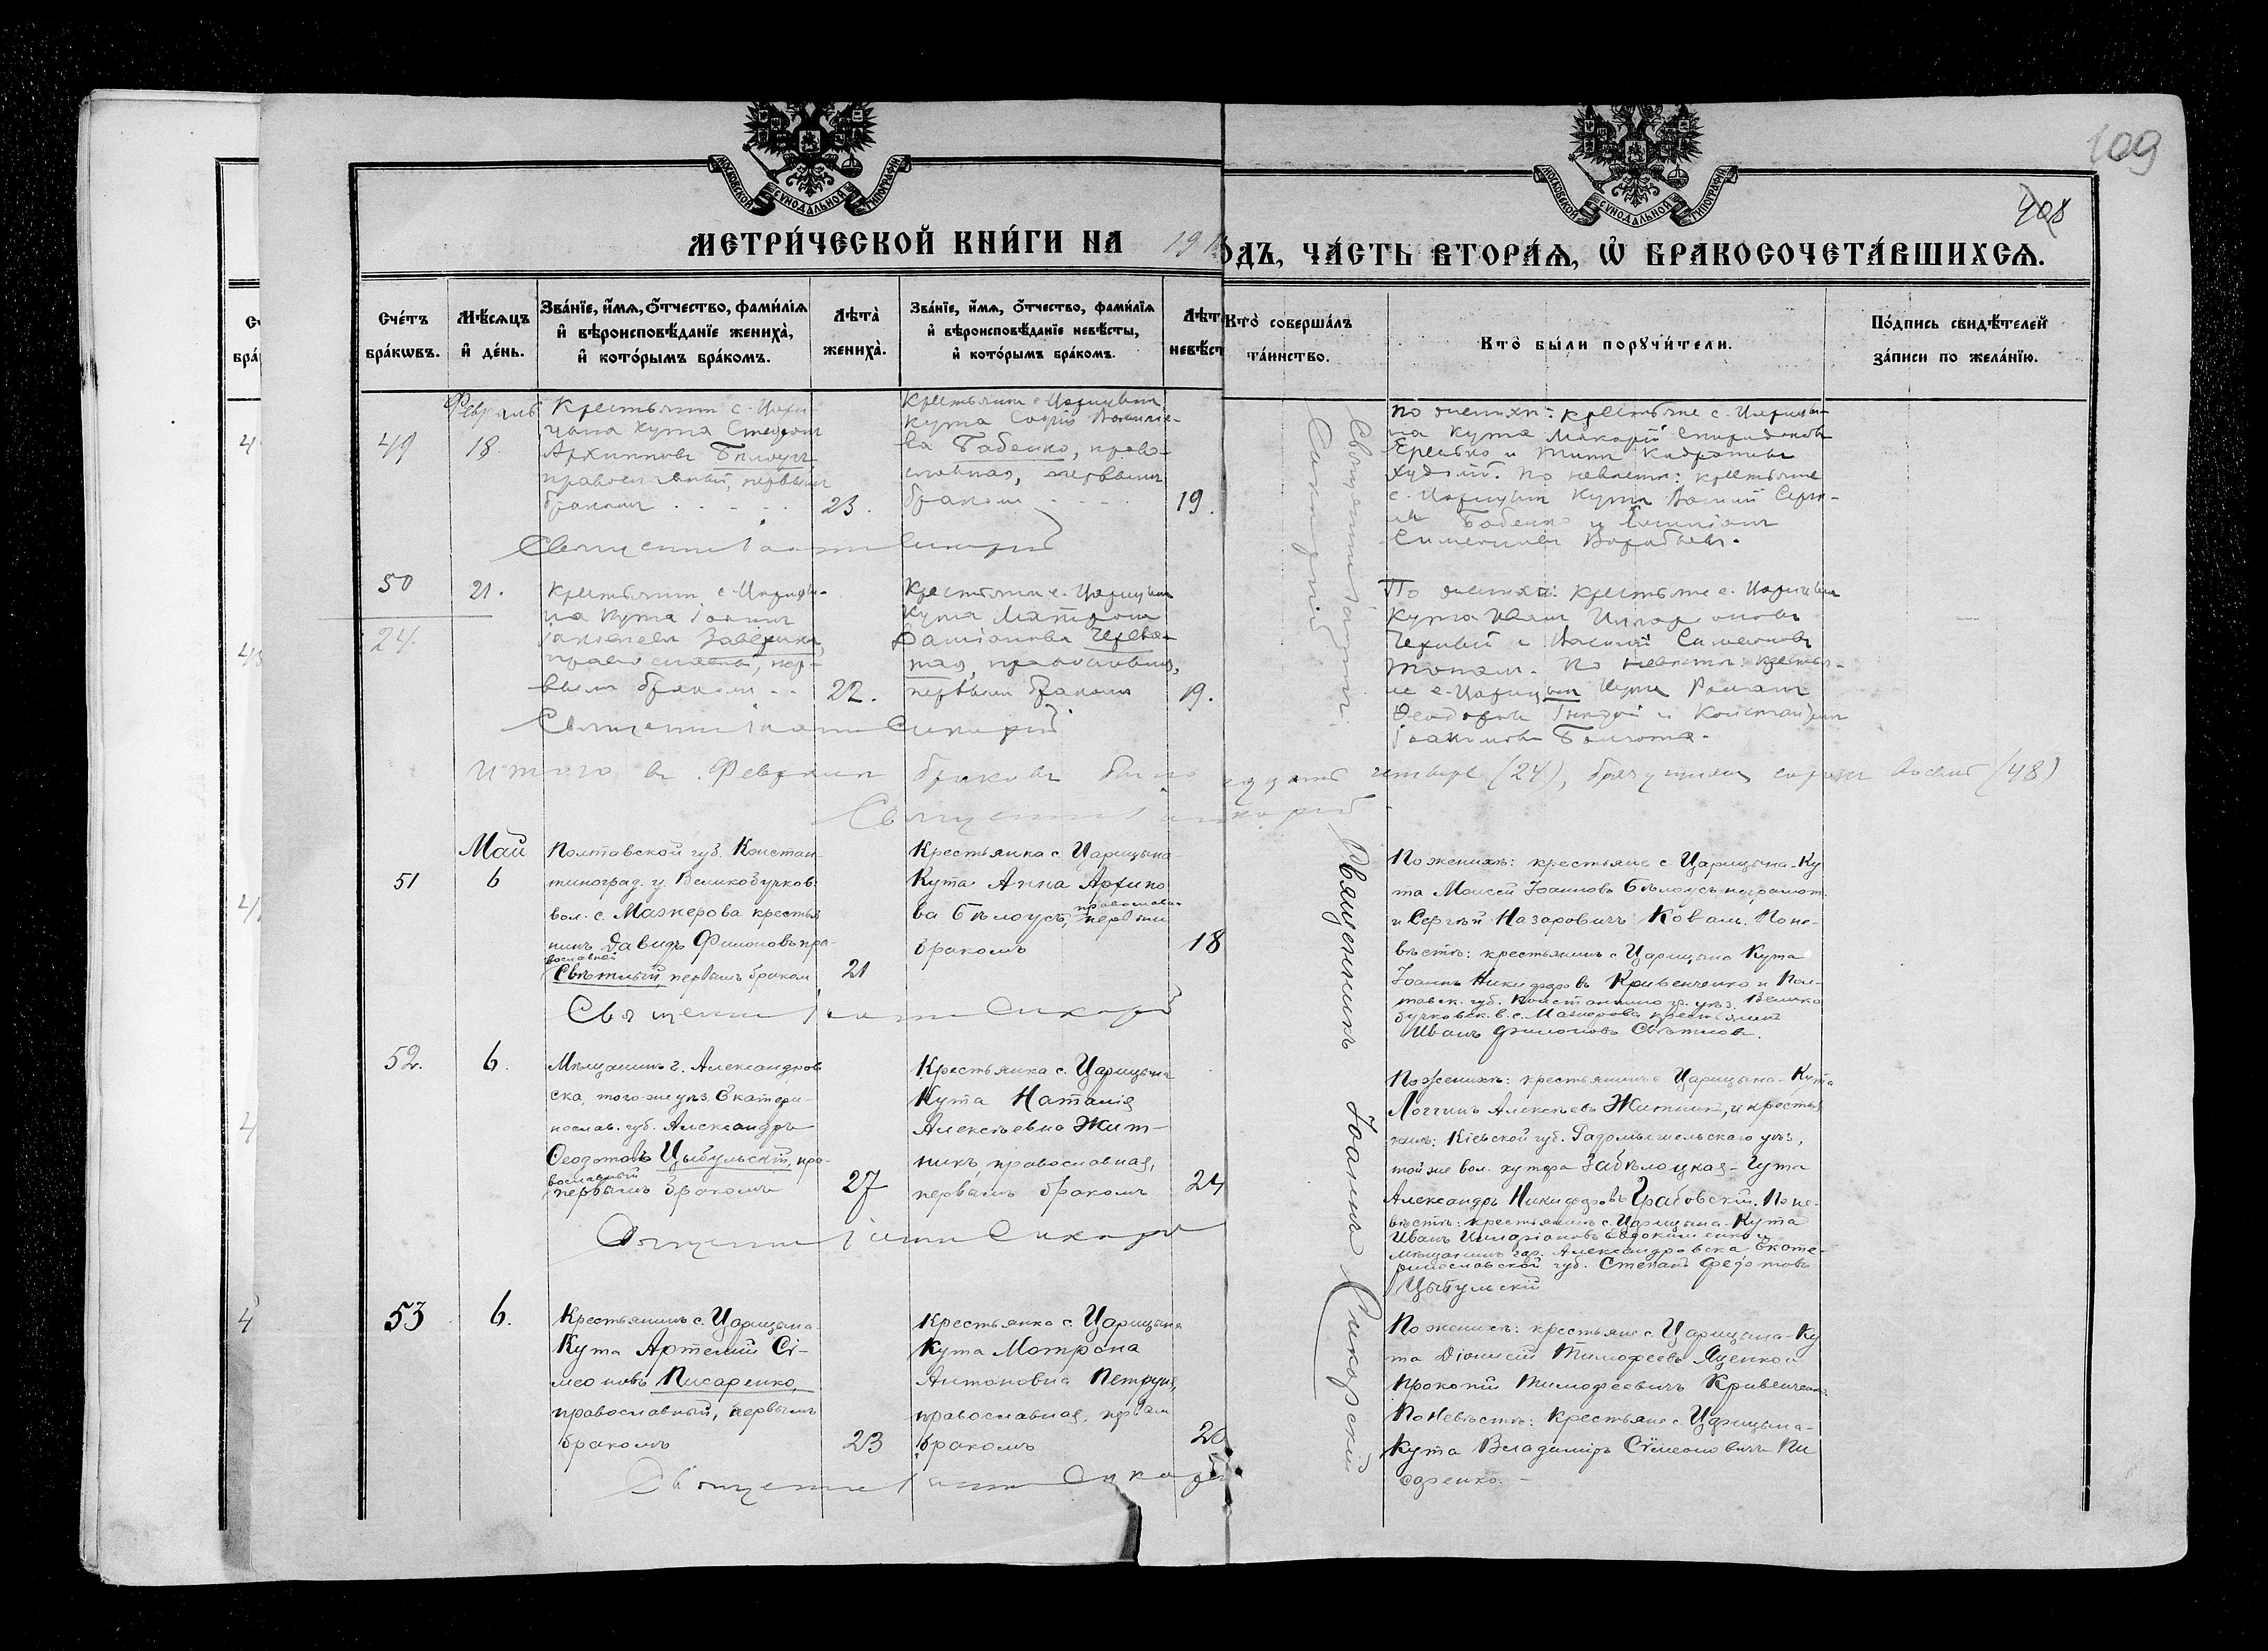 109
408
МОСКОВСКОЙ СѴНОДАЛЬНОЙ ТИПОГРАФІИ
МОСКОВСКОЙ СѴНОДАЛЬНОЙ ТИПОГРАФІИ
МЕТРИ́ЧЕСКОЙ КНИ́ГИ НА 191
ОДЪ, ЧА́СТЬ ВТОРА́Ѧ, Ѡ҆ БРАКОСОЧЕТА́ВШИХСѦ.
Сче́тъ бра́кѡвъ.
Мѣ́сѧцъ и҆ де́нь.
Зва́нїе, и҆́мѧ, ѻ҆́тчество, фами́лїѧ и҆ вѣроисповѣ́данїе жениха̀, и҆ кото́рымъ бра́комъ.
Лѣ́та̀ жениха̀.
Зва́нїе, и҆́мѧ, ѻ҆́тчество, фами́лїѧ и҆ вѣроисповѣ́данїе невѣ́сты, и҆ кото́рымъ бра́комъ.
Лѣт невѣст
Кто̀ соверша́лъ та́инство.
Кто̀ бы́ли порꙋчи́тели.
По́дпись свидѣ́телей за́писи по жела́нїю.
Февраль
49
18
Крестьянин с. Цари-
цына Кута Стефан
Архиппов Билоус
православный, первым
браком
23.
Крестьянка с. Царицына
Кута София Василие-
ва Бабенко, право-
славная, первым
браком
19.
По женихе: крестьяне с. Царицы-
на Кута Макарий Спиридонов
Худолий. По невесте: крестьяне
с. Царицын Кута Василий Серге-
Бабенко и
Симеонов Воробьев.
Священник Іоанн Сикорский
50
24.
21.
Крестьянин с. Царицы-
на Кута Іоанн
Яковлев Заверуха,
православный, пер-
вым браком
22.
Крестьянка с. Царицына
Кута Матрона
Дамианова Черва-
православная,
первым браком
19.
По женихе: крестьяне с. Царицына
Кута Иван Илларионов
и Василий Симеонов
По невесте: крестья-
не с. Царицына Кута Роман
Феодоров и Константин
Іоакимов
Священник Іоанн Сикорский
Итого в Феврале браков было двадцать четыре (24), брачущихся сорок восемь (48)
Священник Сикорский
Май
51
6
Полтавской губ. Констан-
тиноград. у. Великобучков.
вол. с. Мажерова крестья
нинъ Давидъ Филоновъ пра-
вославный
Свѣтлый, первымъ браком
21
Крестьянка с. Царицына
Кута Анна Архипо
ва Бѣлоусъ, православн. первым
бракомъ
18
По женихѣ: крестьяне с. Царицына-Ку
та Моисей Іоанновъ Бѣлоусъ неграмот.
и Сергѣй Назаровичъ Коваль. По не-
вѣстѣ: крестьянинъ с. Царицына Кута
Іоаннъ Никифоровъ Кривенченко и Пол-
тавск. губ. Константиногр. уѣз. Велико
бучковск. в. с. Мажорова крестьянин
Иванъ Филоновъ Свѣтлов.
Священник Іоанн Сикорский
52.
6.
Мѣщанинъ г. Александров
ска, того-же уѣз. Екатери-
нослав. губ. Александръ
Феодотовъ Цыбульскій, пра-
вославный
первымъ бракомъ
27
Крестьянка с. Царицына
Кута Наталія
Алексѣевна Жит-
никъ, православная,
первымъ бракомъ
24
По женихѣ: крестьянинъ с. Царицына-Кута
Логгинъ Алексѣевъ Житник, и крестья
нинъ: Кіевской губ. Радомысшельскаго уѣз.,
той же вол. хутора Забѣлоцкая-Гута
Александръ Никифоровъ Грабовскій. По не-
вѣстѣ: крестьянинъ с. Царицына-Кута
Иванъ Илларіоновъ Евдокименко и
мѣщанинъ гор. Александровска, Екате-
ринославской губ. Степанъ Федотовъ
Цыбульскій
Священник Іоанн Сикорский
53
6.
Крестьянинъ с. Царицына-
Кута Артемій Сі-
меоновъ Писаренко,
православный, первымъ
бракомъ
23
Крестьянка с. Царицына
Кута Матрона
Антоновна Петруня,
православная, первым
бракомъ
20
По женихѣ: крестьяне с. Царицына-Ку
та Діонисій Тимофеевъ Яценко и
Прокопій Тимофеевичъ Кривенченко.
По Невѣстѣ: Крестьяне с. Царицына-
Кута Владиміръ Сімеоновичъ Пи
саренко.
Священник Іоанн Сикорский
Священник Іоанн Сикорский
Священникъ Іоаннъ Сикорскій